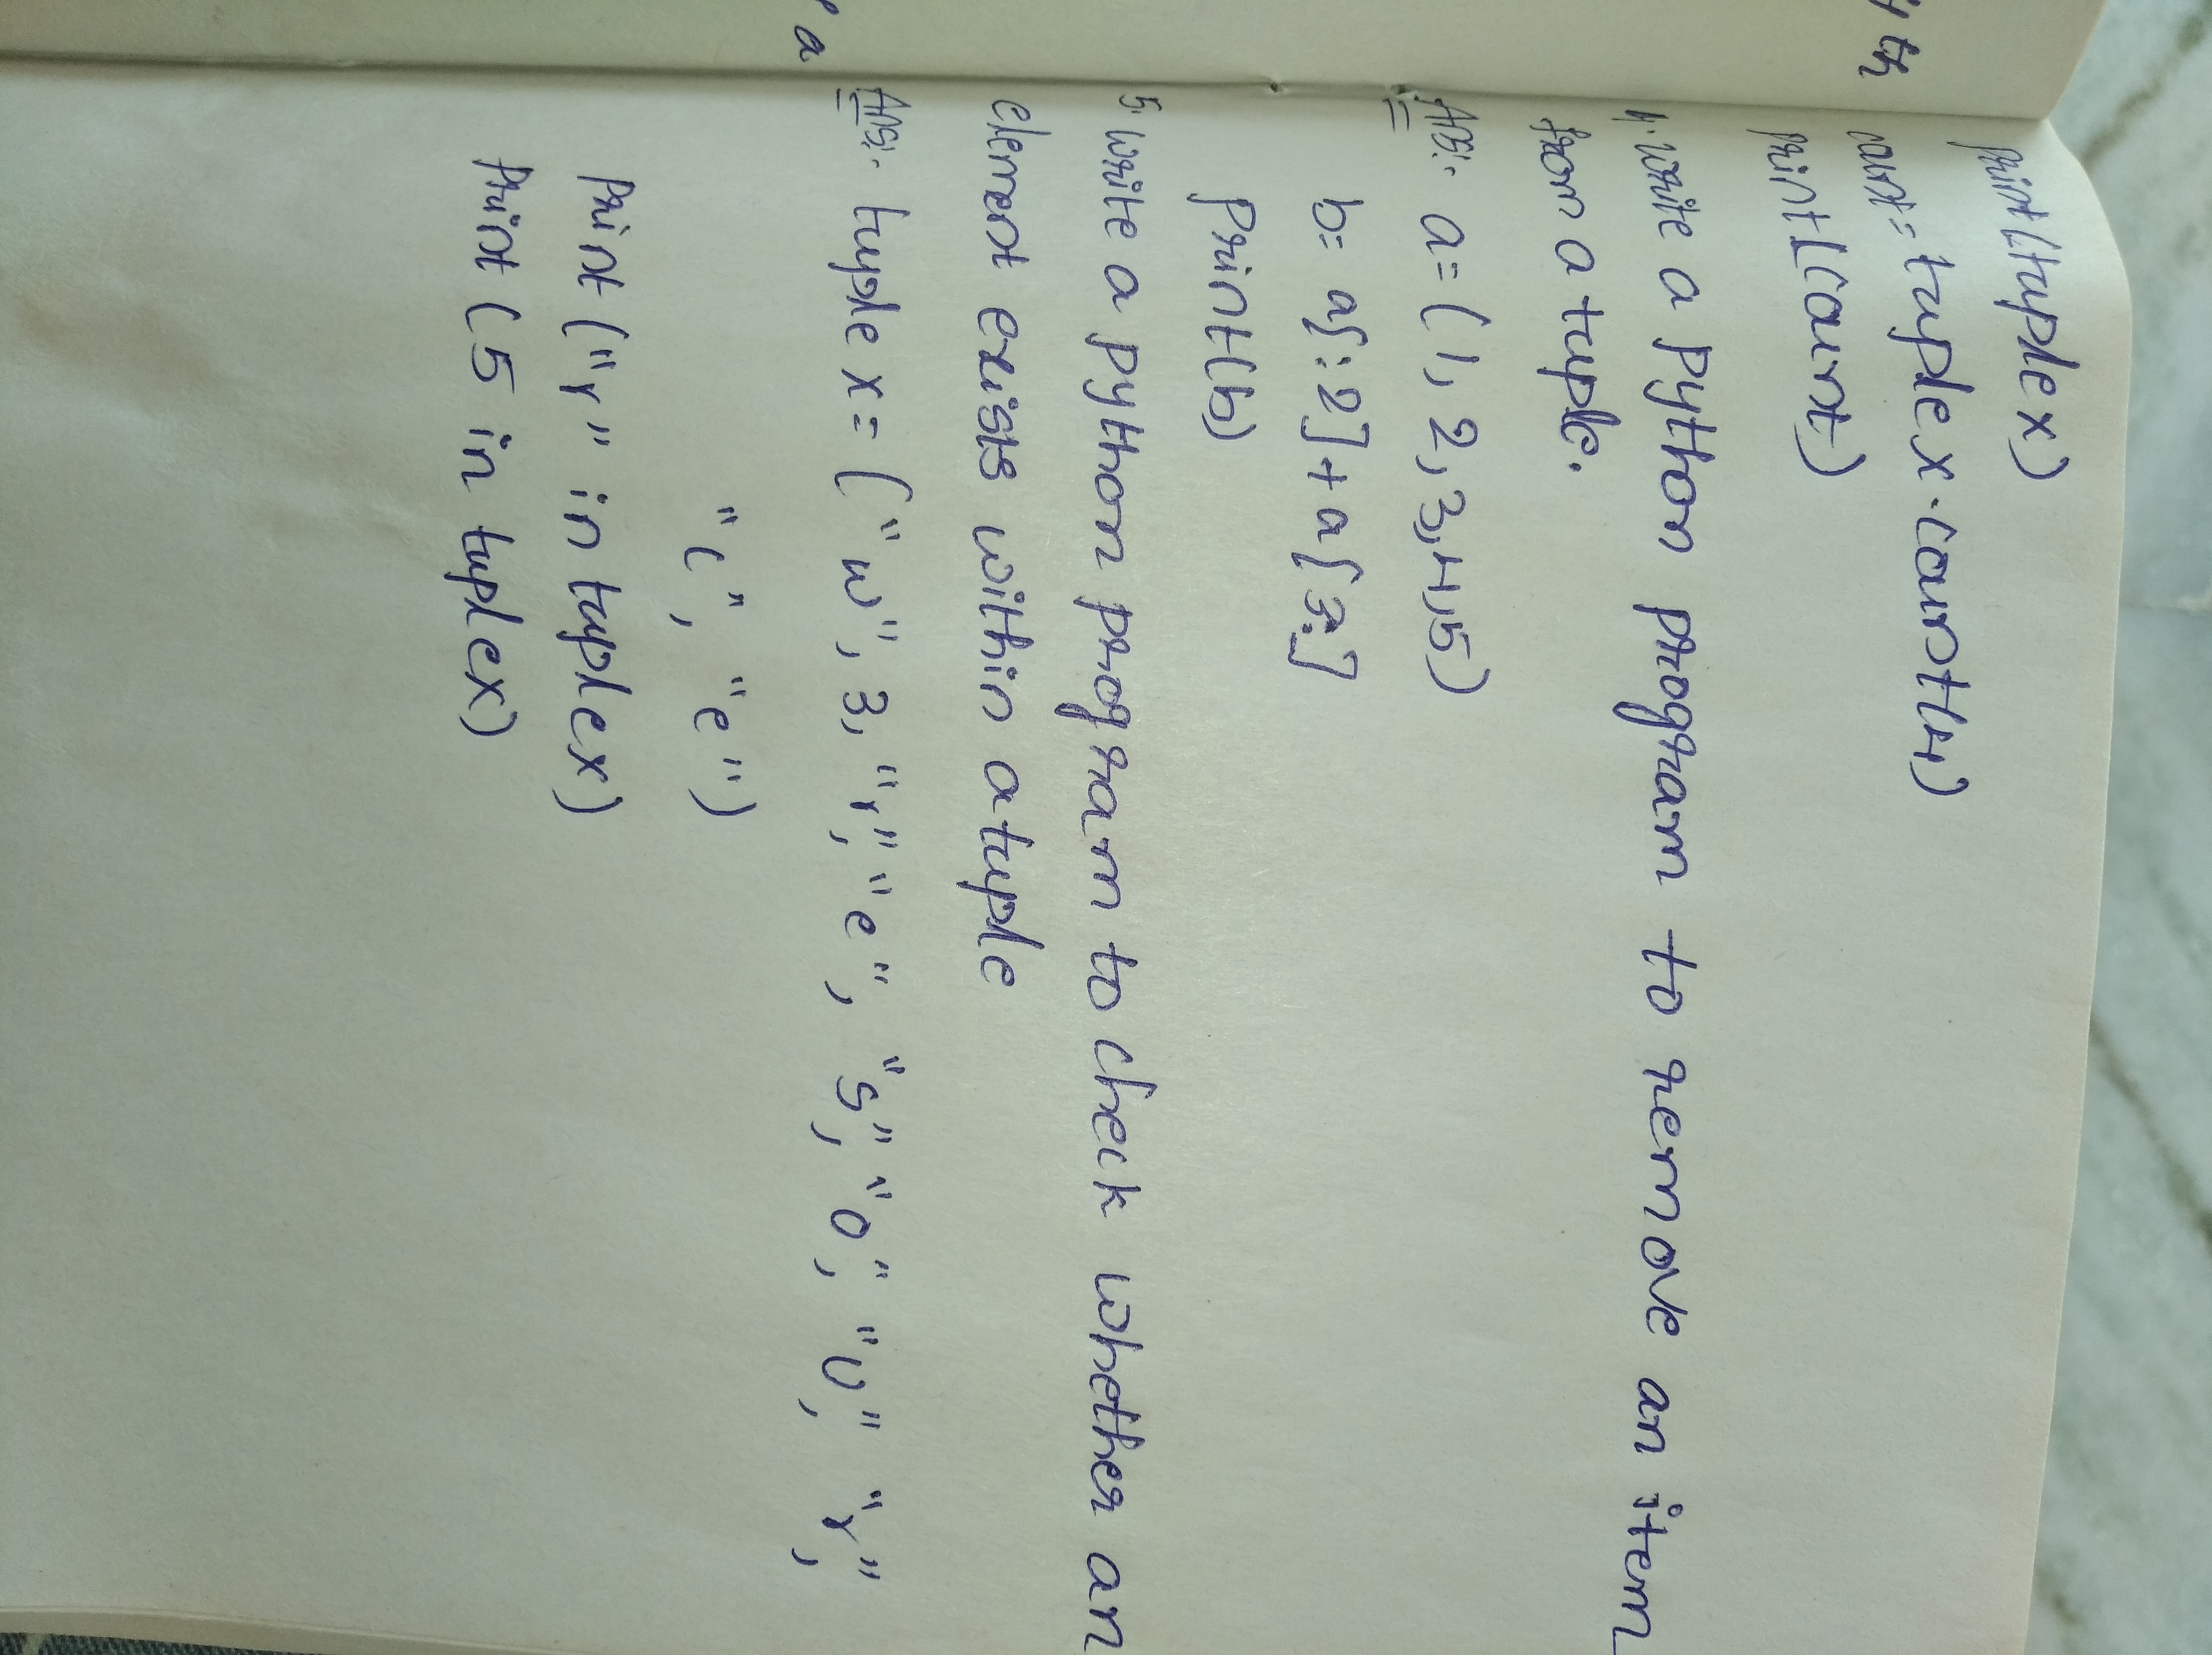 print(tuplex)
count= tuplex.count(4)
print(count)
4. write a python program to remove an item
from a tuple.
Ans:- a=(1,2,3,4,5)
b= a[:2]+a[3:]
print(b)
5. write a python program to check whether an
element exists within a tuple
Ans:- tuple x= ("w", 3, "r", "e", "s", "o", "u", "r",
"c", "e")
print ("r" in tuplex)
print (5 in tuplex)